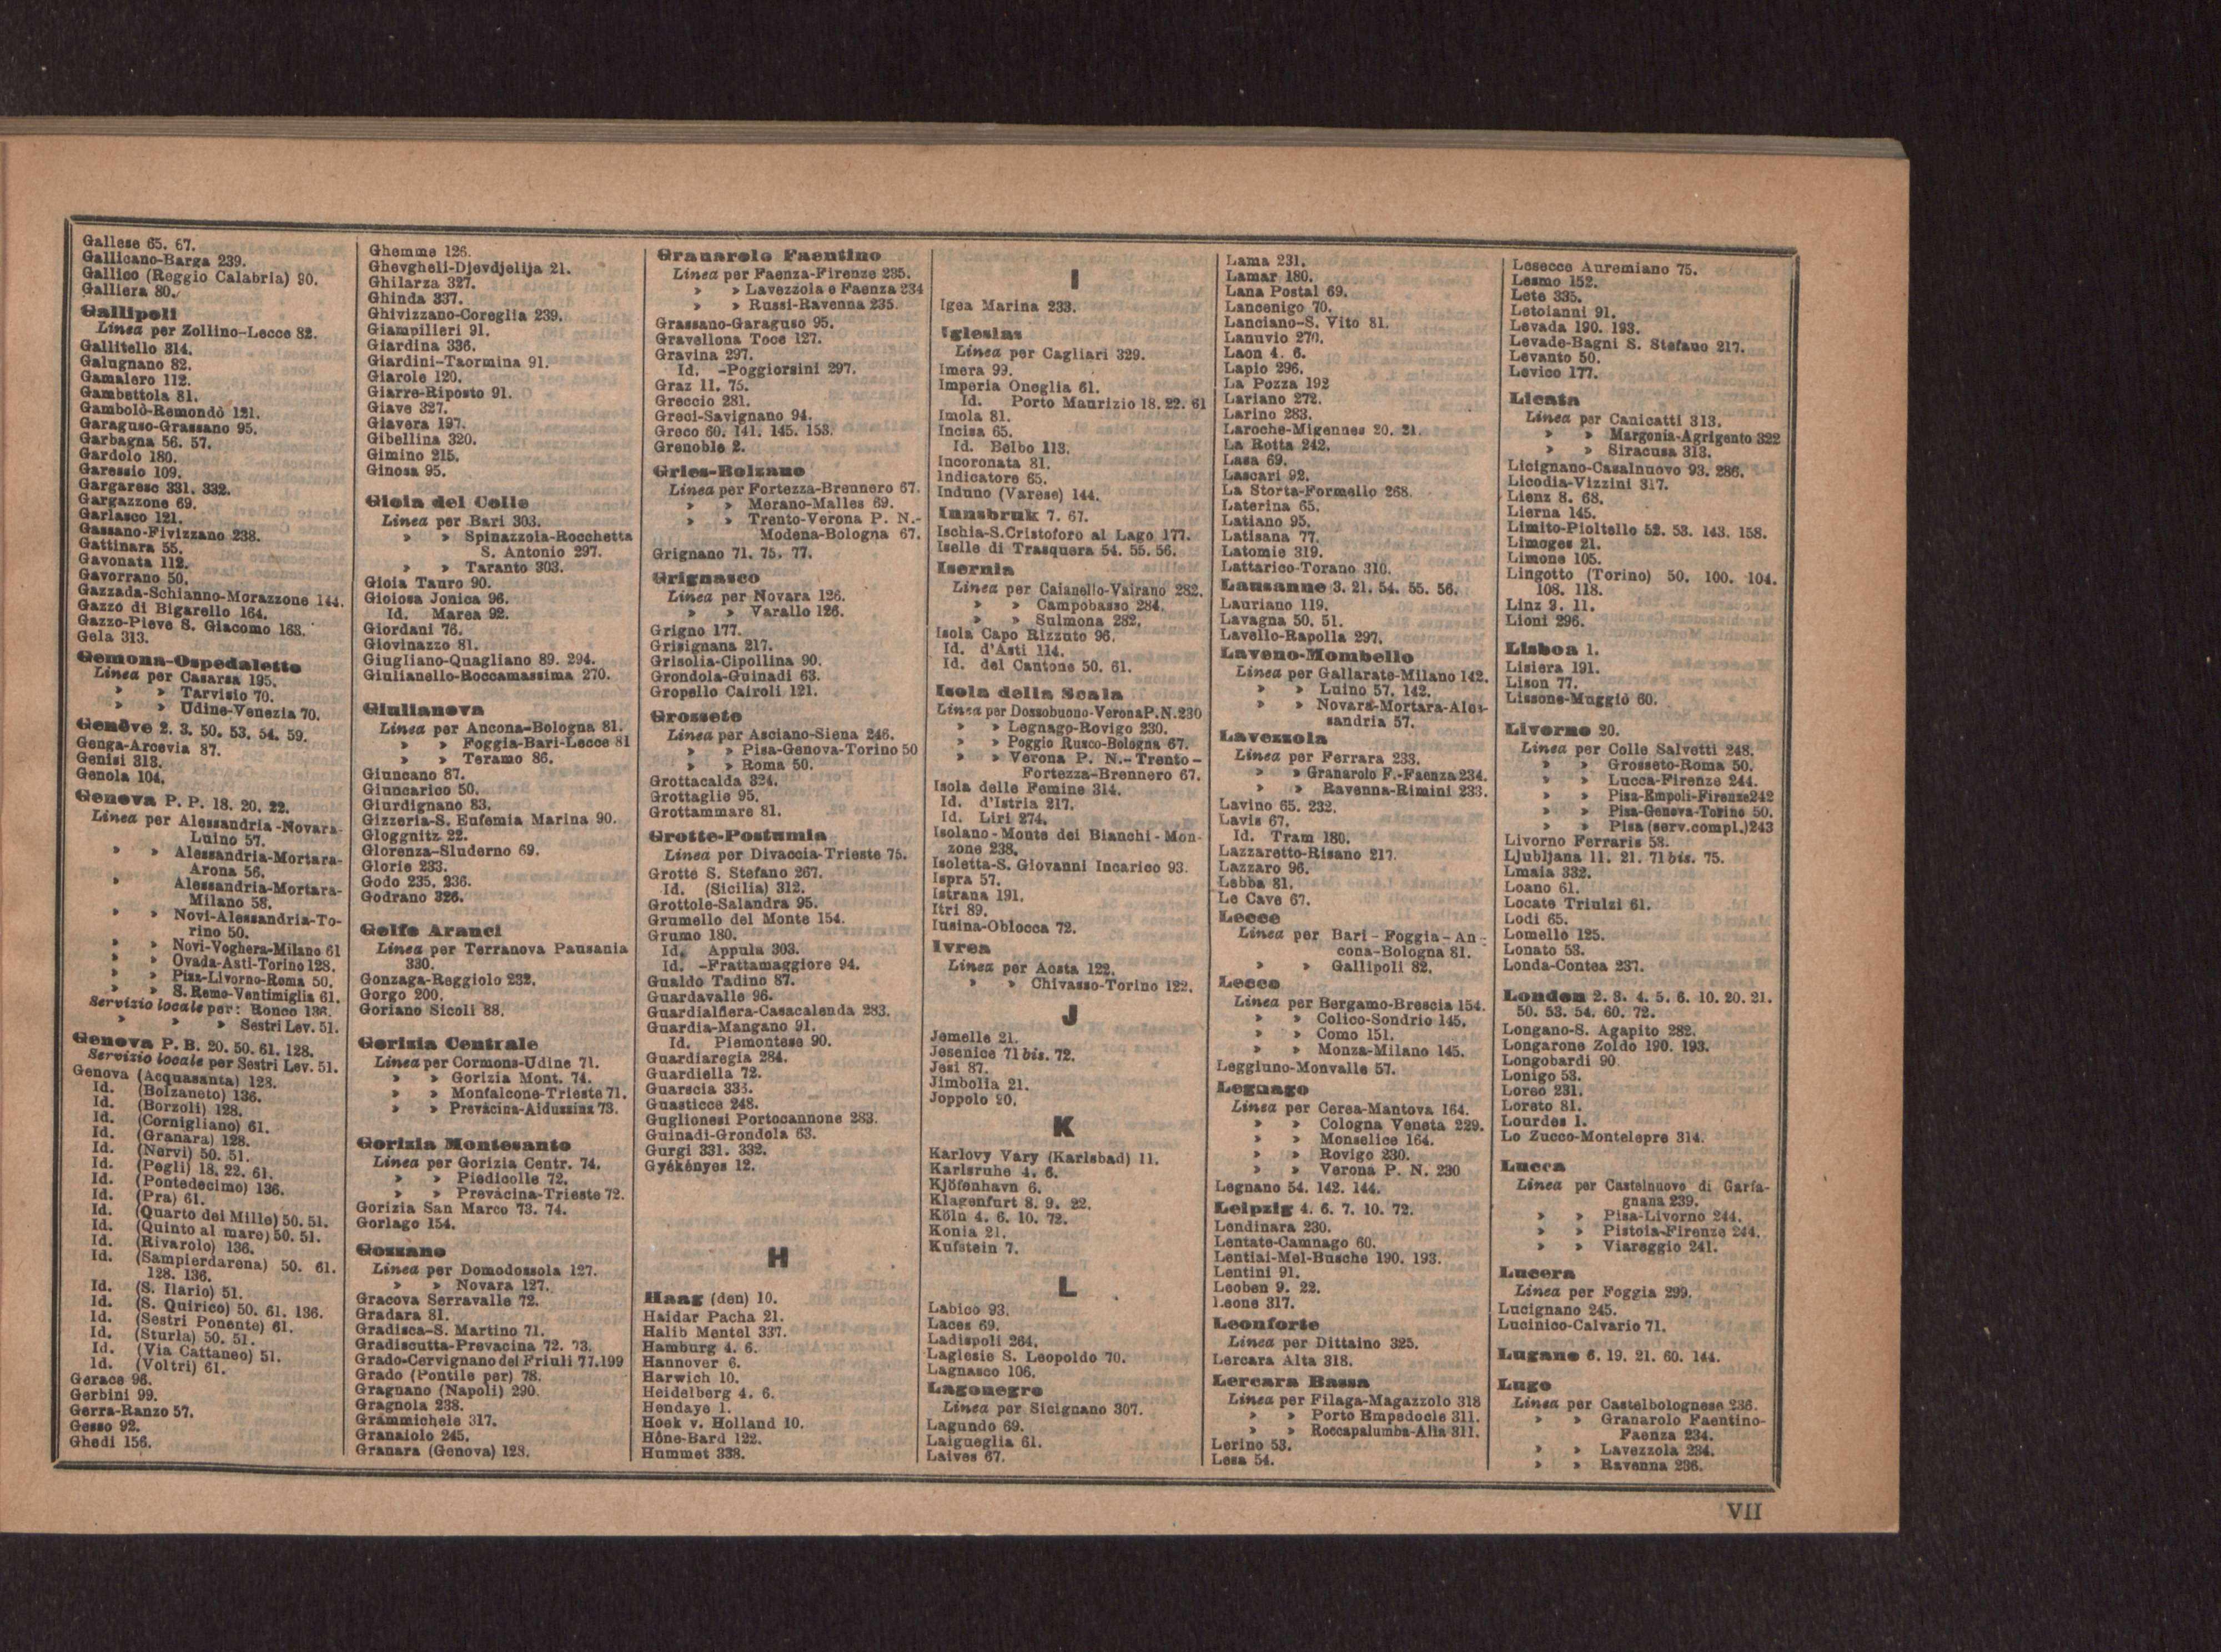 Gallese 65. 67.
Gallicano-Barga 239.
Gallico (Reggio Calabria) 90.
Galliera 80.
Gallipoli
Linea per Zollino-Lecce 82.
Gallitello 314.
Galugnano 82.
Gamalero 112.
Gambettola 81.
Gambolò-Remondò 121.
Garaguso-Grassano 95.
Garbagna 56. 57.
Gardolo 180.
Garessio 109.
Gargaresc 331. 332.
Gargazzone 69.
Garlasco 121.
Gassano-Fivizzano 238.
Gattinara 55.
Gavonata 112.
Gavorrano 50.
Gazzada-Schianno-Morazzone 144.
Gazzo di Bigarello 164.
Gazzo-Pieve S. Giacomo 163.
Gela 313.
Gemona-Ospedaletto
Linea per Casarsa 195.
» » Tarvisio 70.
» » Udine-Venezia 70.
Genève 2. 3. 50. 53. 54. 59.
Genga-Arcevia 87.
Genisi 313.
Genola 104.
Genova P. P. 18. 20. 22.
Linea per Alessandria-Novara-
Luino 57.
» » Alessandria-Mortara-
Arona 56.
» Alessandria-Mortara-
Milano 58.
» » Novi-Alessandria-To-
rino 50.
» » Novi-Voghera-Milano 61
» » Ovada-Asti-Torino 128.
» » Pisa-Livorno-Roma 50.
» » S. Remo-Ventimiglia 61.
Servizio locale per: Ronco 136.
» » » Sestri Lev. 51.
Genova P. B. 20. 50. 61. 128.
Servizio locale per Sestri Lev. 51.
Genova (Acquasanta) 128.
Id. (Bolzaneto) 136.
Id. (Borzoli) 128.
Id. (Cornigliano) 61.
Id. (Granara) 128.
Id. (Nervi) 50. 51.
Id. (Pegli) 18. 22. 61.
Id. (Pontedecimo) 136.
Id. (Pra) 61.
Id. (Quarto dei Mille) 50. 51.
Id. (Quinto al mare) 50. 51.
Id. (Rivarolo) 136.
Id. (Sampierdarena) 50. 61.
128. 136.
Id. (S. Ilario) 51.
Id. (S. Quirico) 50. 61. 136.
Id. (Sestri Ponente) 61.
Id. (Sturla) 50. 51.
Id. (Via Cattaneo) 51.
Id. (Voltri) 61.
Gerace 96.
Gerbini 99.
Gerra-Ranzo 57.
Gesso 92.
Ghedi 156.
Ghemme 126.
Ghevgheli-Djevdjelija 21.
Ghilarza 327.
Ghinda 337.
Ghivizzano-Coreglia 239.
Giampilieri 91.
Giardina 336.
Giardini-Taormina 91.
Giarole 120.
Giarre-Riposto 91.
Giave 327.
Giavera 197.
Gibellina 320.
Gimino 215.
Ginosa 95.
Gioia del Colle
Linea per Bari 303.
» » Spinazzola-Rocchetta
S. Antonio 297.
» » Taranto 303.
Gioia Tauro 90.
Gioiosa Jonica 96.
Id. Marea 92.
Giordani 76.
Giovinazzo 81.
Giugliano-Quagliano 89. 294.
Giulianello-Roccamassima 270.
Giulianova
Linea per Ancona-Bologna 81.
» » Foggia-Bari-Lecce 81
» » Teramo 86.
Giuncano 87.
Giuncarico 50.
Giurdignano 83.
Gizzeria-S. Eufemia Marina 90.
Gloggnitz 22.
Glorenza-Sluderno 69.
Glorie 233.
Godo 235. 236.
Godrano 326.
Golfo Aranci
Linea per Terranova Pausania
330.
Gonzaga-Reggiolo 232.
Gorgo 200.
Goriano Sicoli 88.
Gorizia Centrale
Linea per Cormons-Udine 71.
» » Gorizia Mont. 74.
» » Monfalcone-Trieste 71.
» » Prevàcina-Aidussina 73.
Gorizia Montesanto
Linea per Gorizia Centr. 74.
» » Piedicolle 72.
» » Prevàcina-Trieste 72.
Gorizia San Marco 73. 74.
Gorlago 154.
Gozzano
Linea per Domodossola 127.
» » Novara 127.
Gracova Serravalle 72.
Gradara 81.
Gradisca-S. Martino 71.
Gradiscutta-Prevacina 72. 73.
Grado-Cervignano del Friuli 77.199
Grado (Pontile per) 78.
Gragnano (Napoli) 290.
Gragnola 238.
Grammichele 317.
Granaiolo 245.
Granara (Genova) 128.
Granarolo Faentino
Linea per Faenza-Firenze 235.
» » Lavezzola e Faenza 234
» » Russi-Ravenna 235.
Grassano-Garaguso 95.
Gravellona Toce 127.
Gravina 297.
Id. -Poggiorsini 297.
Graz 11. 75.
Greccio 281.
Greci-Savignano 94.
Greco 60. 141. 145. 153.
Grenoble 2.
Gries-Bolzano
Linea per Fortezza-Brennero 67.
» » Merano-Malles 69.
» » Trento-Verona P. N.-
Modena-Bologna 67.
Grignano 71. 75. 77.
Grignasco
Linea per Novara 126.
» » Varallo 126.
Grigno 177.
Grisignana 217.
Grisolia-Cipollina 90.
Grondola-Guinadi 63.
Gropello Cairoli 121.
Grosseto
Linea per Asciano-Siena 246.
» » Pisa-Genova-Torino 50
» » Roma 50.
Grottacalda 324.
Grottaglie 95.
Grottammare 81.
Grotte-Postumia
Linea per Divaccia-Trieste 75.
Grotte S. Stefano 267.
Id. (Sicilia) 312.
Grottole-Salandra 95.
Grumello del Monte 154.
Grumo 180.
Id. Appula 303.
Id. -Frattamaggiore 94.
Gualdo Tadino 87.
Guardavalle 96.
Guardialfiera-Casacalenda 283.
Guardia-Mangano 91.
Id. Piemontese 90.
Guardiaregia 284.
Guardiella 72.
Guarscia 333.
Guasticce 248.
Guglionesi Portocannone 283.
Guinadi-Grondola 63.
Gurgi 331. 332.
Gyékényes 12.
H
Haag (den) 10.
Haidar Pacha 21.
Halib Mentel 337.
Hamburg 4. 6.
Hannover 6.
Harwich 10.
Heidelberg 4. 6.
Hendaye 1.
Hoek v. Holland 10.
Hône-Bard 122.
Hummet 338.
I
Igea Marina 233.
Iglesias
Linea per Cagliari 329.
Imera 99.
Imperia Oneglia 61.
Id. Porto Maurizio 18. 22. 61
Imola 81.
Incisa 65.
Id. Belbo 113.
Incoronata 81.
Indicatore 65.
Induno (Varese) 144.
Innsbruk 7. 67.
Ischia-S.Cristoforo al Lago 177.
Iselle di Trasquera 54. 55. 56.
Isernia
Linea per Caianello-Vairano 282.
» » Campobasso 284.
» » Sulmona 282.
Isola Capo Rizzuto 96.
Id. d'Asti 114.
Id. del Cantone 50. 61.
Isola della Scala
Linea per Dossobuono-Verona P.N.230
» » Legnago-Rovigo 230.
» » Poggio Rusco-Bologna 67.
» » Verona P. N.-Trento-
Fortezza-Brennero 67.
Isola delle Femine 314.
Id. d'Istria 217.
Id. Liri 274.
Isolano-Monte dei Bianchi-Mon-
zone 238.
Isoletta-S. Giovanni Incarico 93.
Ispra 57.
Istrana 191.
Itri 89.
Iusina-Oblocca 72.
Ivrea
Linea per Aosta 122.
» » Chivasso-Torino 122.
J
Jemelle 21.
Jesenice 71 bis. 72.
Jesi 87.
Jimbolia 21.
Joppolo 90.
K
Karlovy Vary (Karlsbad) 11.
Karlsruhe 4. 6.
Kjöfenhavn 6.
Klagenfurt 8. 9. 22.
Köln 4. 6. 10. 72.
Konia 21.
Kufstein 7.
L
Labico 93.
Laces 69.
Ladispoli 264.
Laglesie S. Leopoldo 70.
Lagnasco 106.
Lagonegro
Linea per Sicignano 307.
Lagundo 69.
Laigueglia 61.
Laives 67.
Lama 231.
Lamar 180.
Lana Postal 69.
Lancenigo 70.
Lanciano-S. Vito 81.
Lanuvio 270.
Laon 4. 6.
Lapio 296.
La Pozza 192
Lariano 272.
Larino 283.
Laroche-Migennes 20. 21.
La Rotta 242.
Lasa 69.
Lascari 92.
La Storta-Formello 268.
Laterina 65.
Latiano 95.
Latisana 77.
Latomie 319.
Lattarico-Torano 310.
Lausanne 3. 21. 54. 55. 56.
Lauriano 119.
Lavagna 50. 51.
Lavello-Rapolla 297.
Laveno-Mombello
Linea per Gallarate-Milano 142.
» » Luino 57. 142.
» » Novara-Mortara-Ales-
sandria 57.
Lavezzola
Linea per Ferrara 233.
» » Granarolo F.-Faenza 234.
» » Ravenna-Rimini 233.
Lavino 65. 232.
Lavis 67.
Id. Tram 180.
Lazzaretto-Risano 217.
Lazzaro 96.
Lebba 81.
Le Cave 67.
Lecce
Linea per Bari-Foggia-An-
cona-Bologna 81.
» » Gallipoli 82.
Lecco
Linea per Bergamo-Brescia 154.
» » Colico-Sondrio 145.
» » Como 151.
» » Monza-Milano 145.
Leggiuno-Monvalle 57.
Legnago
Linea per Cerea-Mantova 164.
» » Cologna Veneta 229.
» » Monselice 164.
» » Rovigo 230.
» » Verona P. N. 230
Legnano 54. 142. 144.
Leipzig 4. 6. 7. 10. 72.
Lendinara 230.
Lentate-Camnago 60.
Lentiai-Mel-Busche 190. 193.
Lentini 91.
Leoben 9. 22.
Leone 317.
Leonforte
Linea per Dittaino 325.
Lercara Alta 318.
Lercara Bassa
Linea per Filaga-Magazzolo 318
» » Porto Empedocle 311.
» » Roccapalumba-Alia 311.
Lerino 53.
Lesa 54.
Lesecce Auremiano 75.
Lesmo 152.
Lete 335.
Letoianni 91.
Levada 190. 193.
Levade-Bagni S. Stefano 217.
Levanto 50.
Levico 177.
Licata
Linea per Canicatti 313.
» » Margonia-Agrigento 322
» » Siracusa 313.
Licignano-Casalnuovo 93. 286.
Licodia-Vizzini 317.
Lienz 8. 68.
Lierna 145.
Limito-Pioltello 52. 53. 143. 158.
Limoges 21.
Limone 105.
Lingotto (Torino) 50. 100. 104.
108. 118.
Linz 9. 11.
Lioni 296.
Lisboa 1.
Lisiera 191.
Lison 77.
Lissone-Muggiò 60.
Livorno 20.
Linea per Colle Salvetti 248.
» » Grosseto-Roma 50.
» » Lucca-Firenze 244.
» » Pisa-Empoli-Firenze 242
» » Pisa-Genova-Torino 50.
» » Pisa (serv.compl.) 243
Livorno Ferraris 58.
Ljubljana 11. 21. 71 bis. 75.
Lmaia 332.
Loano 61.
Locate Triulzi 61.
Lodi 65.
Lomello 125.
Lonato 53.
Londa-Contea 237.
London 2. 3. 4. 5. 6. 10. 20. 21.
50. 53. 54. 60. 72.
Longano-S. Agapito 282.
Longarone Zoldo 190. 193.
Longobardi 90.
Lonigo 53.
Loreo 231.
Loreto 81.
Lourdes 1.
Lo Zucco-Montelepre 314.
Lucca
Linea per Castelnuovo di Garfa-
gnana 239.
» » Pisa-Livorno 244.
» » Pistoia-Firenze 244.
» » Viareggio 241.
Lucera
Linea per Foggia 299.
Lucignano 245.
Lucinico-Calvario 71.
Lugano 6. 19. 21. 60. 144.
Lugo
Linea per Castelbolognese 236.
» » Granarolo Faentino-
Faenza 234.
» » Lavezzola 234.
» » Ravenna 236.
VII